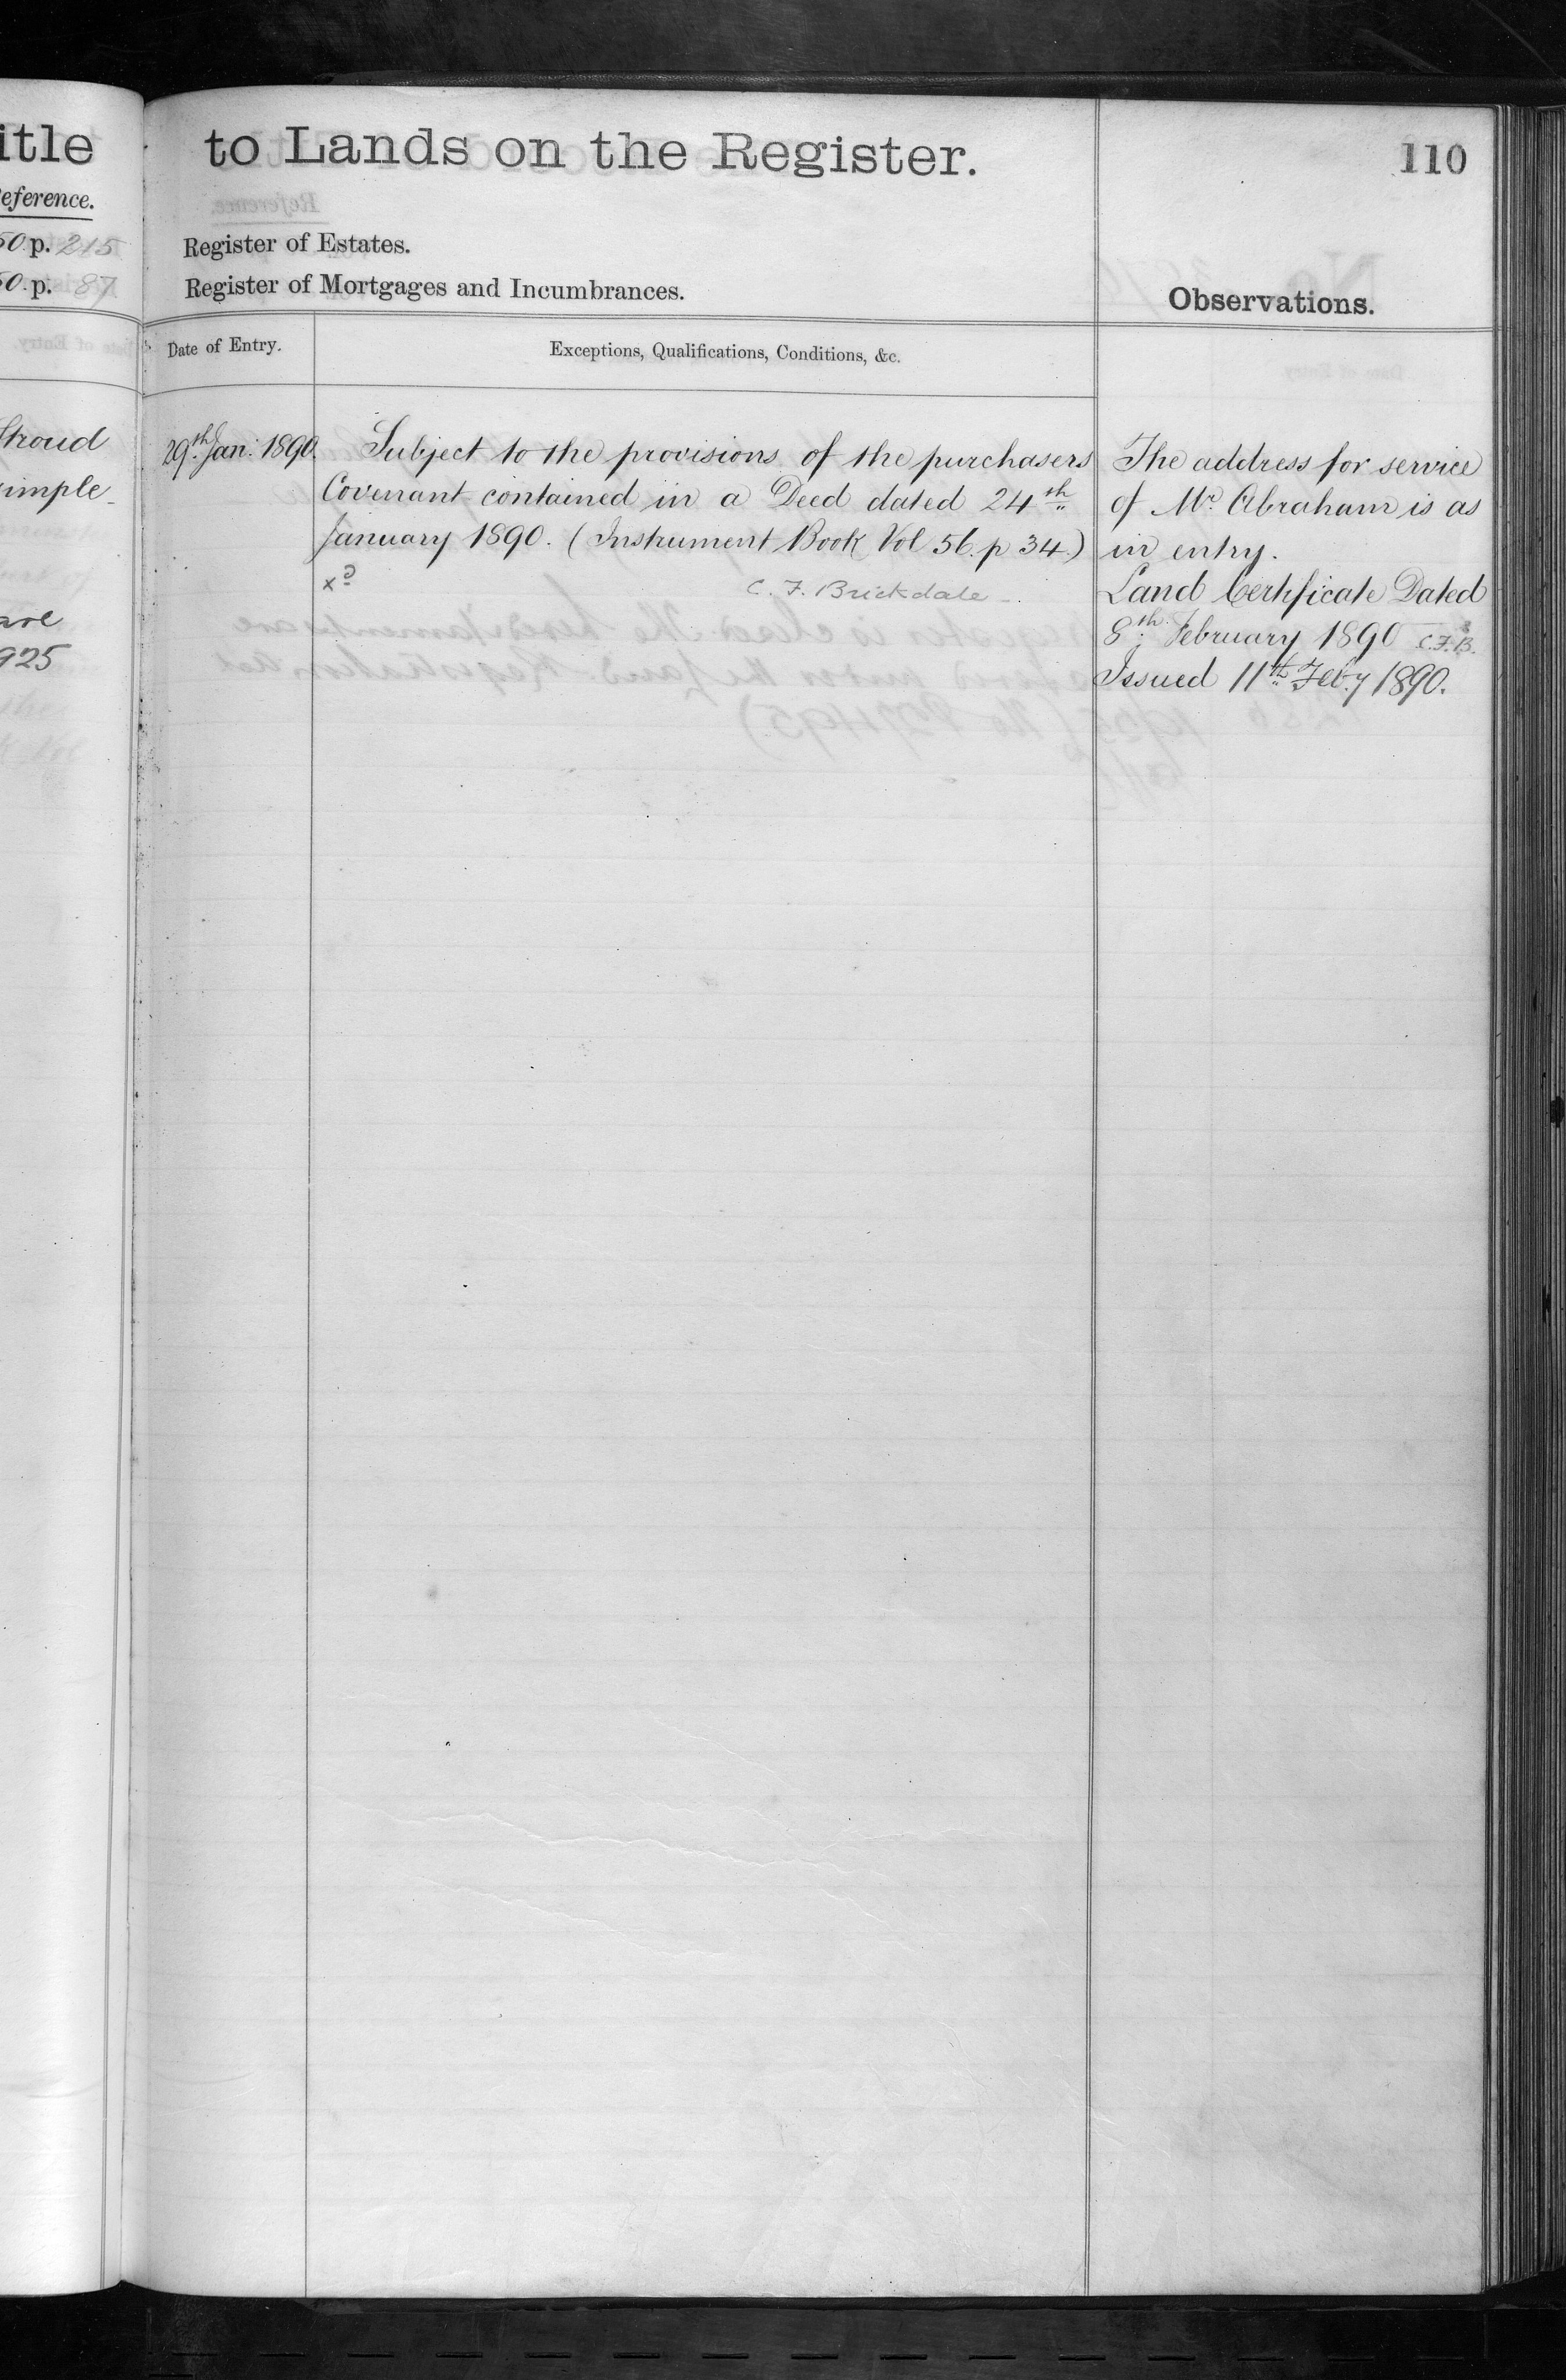 itle
eference.
50 p. 215
50 p. 87
Stroud
simple
are
925
to Lands on the Register.
110
Register of Estates.
Register of Mortgages and Incumbrances.
Observations.
Date of Entry.
Exceptions, Qualifications, Conditions, &c.
29th Jan: 1890.
Subject to the provisions of the purchasers
Covenant contained in a Deed dated 24th
January 1890. (Instrument Book Vol 56. p 34.)
xd
C. F. Brickdale
The address for service
of Mr. Abraham is as
in entry.
Land Certificate Dated
8th February 1890 C.F.B.
Issued 11th Feby 1890.